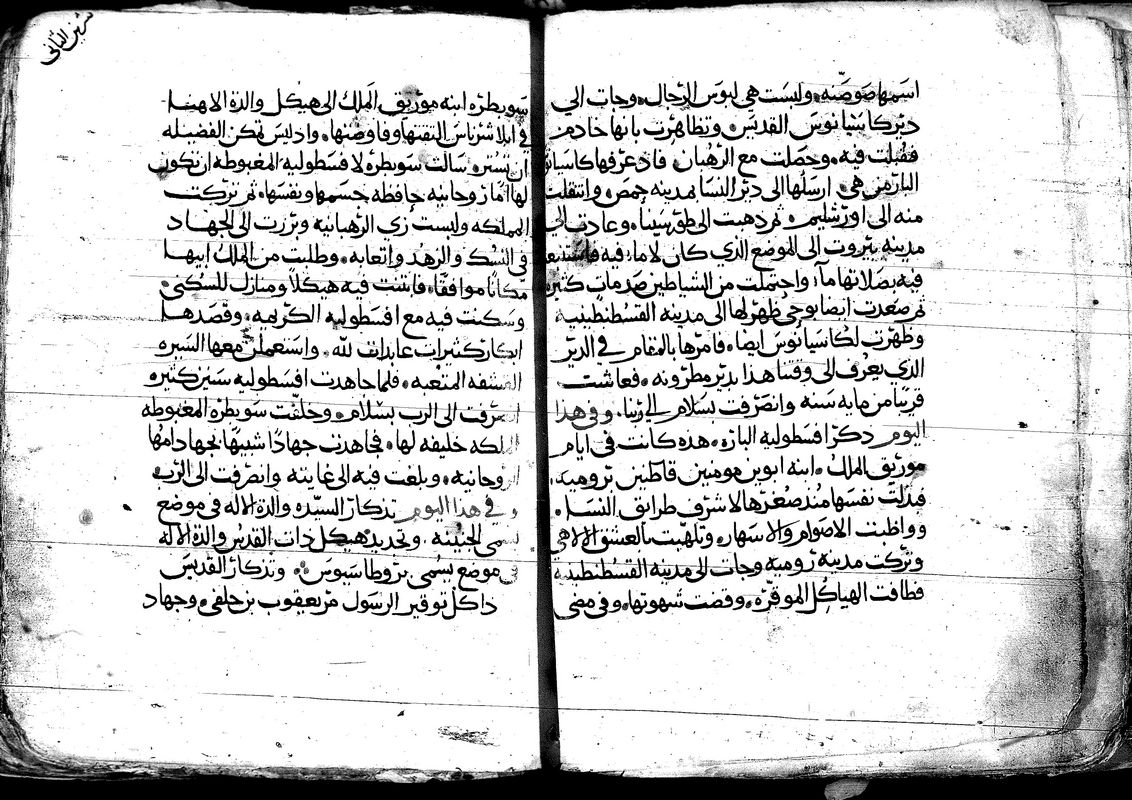 اسمها صوصنه. ولبست هي لبوس الرجال. وجات الي
دير كاسيانوس القديس. وتظاهرت بانها خادم
فقبلت فيه. وحصلت مع الرهبان. فاذ عرفها كاسيانوس
البار من هي. ارسلها الى دير النسا بمدينه حمص. وانتقلت
منه الى اورشليم. ثم ذهبت الى طور سينا. وعادت الي
مدينه بيروت الى الموضع الذي كان لا ما فيه فاستنبعت
فيه بصلاتها ما. واحتملت من الشياطين صدمات كثيره
ثم صعدت ايضا بوحي ظهر لها الى مدينه القسطنطينيه
وظهرت لكاسيانوس ايضا. فامرها بالمقام في الدير
الذي يعرف الى وقتنا هذا بدير مطرونه. فعاشت
قريبا من مايه سنه وانصرفت بسلام الي ربنا. وفي هذا
اليوم ذكر افسطوليه الباره. هذه كانت في ايام
موريق الملك. ابنه ابوين مومنين قاطنين بروميه.
فبذلت نفسها منذ صغرها لاشرف طرائق النسك.
وواظبت الاصوام والاسهار. وتلهبت بالعشق الالاهي
وتركت مدينه روميه وجات الى مدينه القسطنطينيه
فطافت الهياكل الموقره. وقضت شهوتها. وفي مضي
تشرين الثاني
سوبطره ابنه موريق الملك الى هيكل والدة الاهنا
في ابلاشرناس التقتها وفاوضتها. واذ ليس تمكن الفضيله
ان تستر. سالت سوبطره لافسطوليه المغبوطه ان تكون
لها امًا روحانيه حافظه جسمها ونفسها. ثم تركت
المملكه ولبست زي الرهبانيه وبرزت الى الجهاد
في النسك والزهد واتعابه. وطلبت من الملك ابيها
مكانًا موافقًا. فابتنت فيه هيكلًا ومنازل للسكني
وسكنت فيه مع افسطوليه الكريمه. وقصدها
ابكار كثيرات عابدات لله. واستعملن معها السيره
القشفه المتعبه. فلما جاهدت افسطوليه سنين كثيره
انصرفت الى الرب بسلام. وخلفت سوبطره المغبوطه
الملكه خليفه لها. فجاهدت جهادًا شبيهًا بجهاد امها
الروحانيه. وبلغت فيه الى غايته وانصرفت الى الرب
وفي هذا اليوم تذكار السيده والدة الاله في موضع
يسمى الجنينه. وتجديد هيكل ذات القدس والدة الاله
في موضع يسمى بروطاسيوس. وتذكار القديس
ذا كل توقير الرسول مر يعقوب بن حلفي. وجهاد